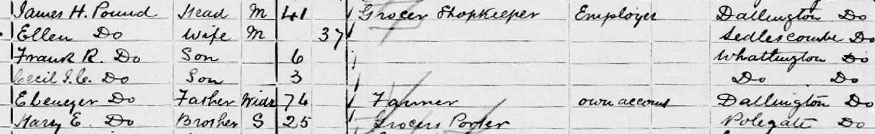 James H. Pound Head M 41 Grocer Shopkeeper Employer Dallington Do
Ellen Do Wife M 37 Sedlescombe Do
Frank R. Do Son 6 Whatlington Do
Cecil Do Son 3 Do Do
Ebenezer Do Father Widr 74 Farmer own account Dallington Do
Harry E. Do Brother S 25 Grocers Porter Polegate Do